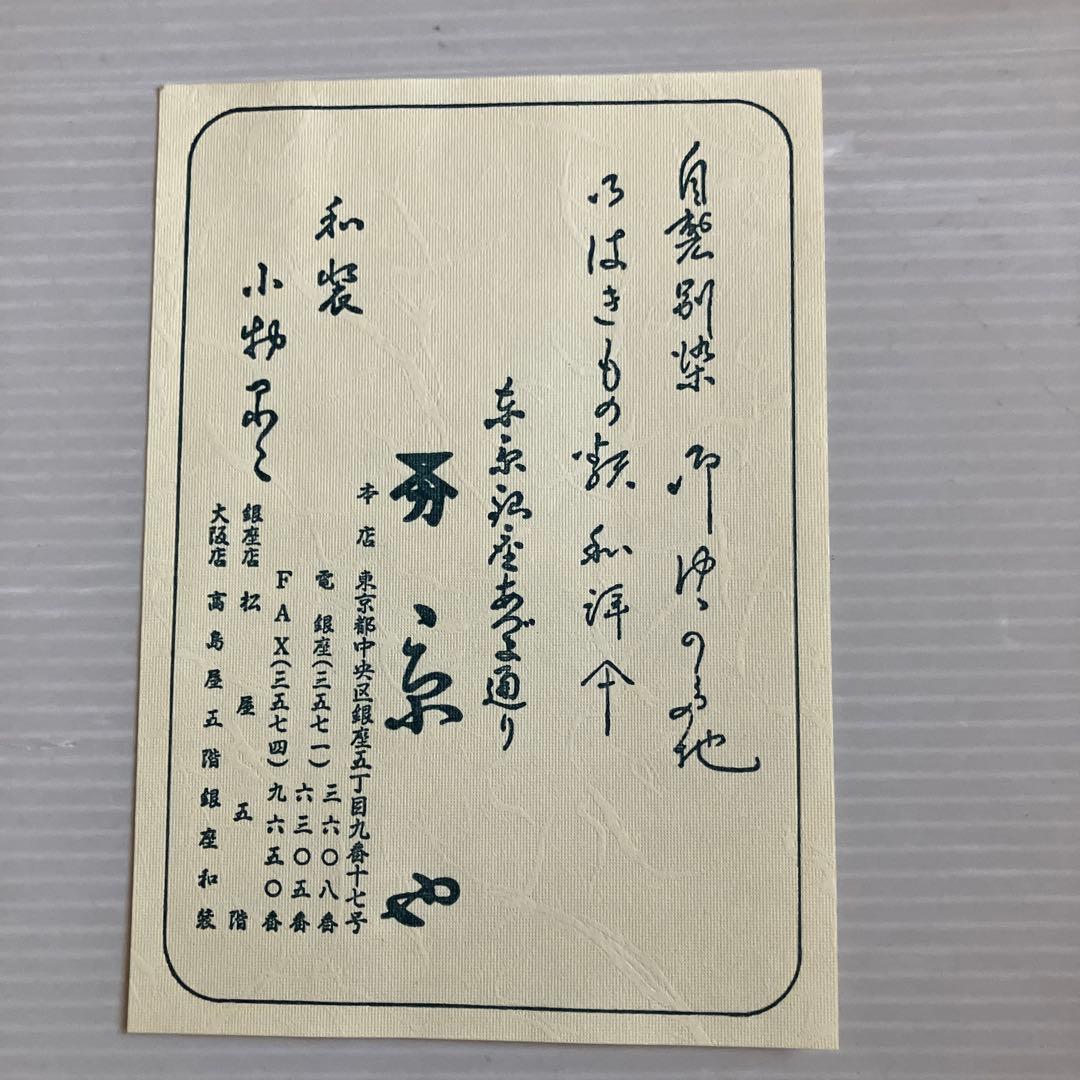 自製別染 御ゆかた地
御はきもの類 和洋傘
東京銀座あづま通り
京屋
本店 東京都中央区銀座五丁目九番十七号
電 銀座(三五七一)三六〇八番
六三〇五番
FAX(三五七四)九六五〇番
和装
小物
銀座店 松屋五階
大阪店 高島屋五階銀座和装